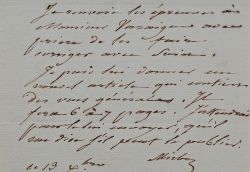 Je renvoie les épreuves à
Monsieur
prière de les faire
corriger avec soin.
Je puis lui donner un
nouvel article qui contient
des vues générales. Il
fera 6 à 7 pages. J'attendrai
pour le lui envoyer, qu'il
me dise s'il peut le publier.
ce 13